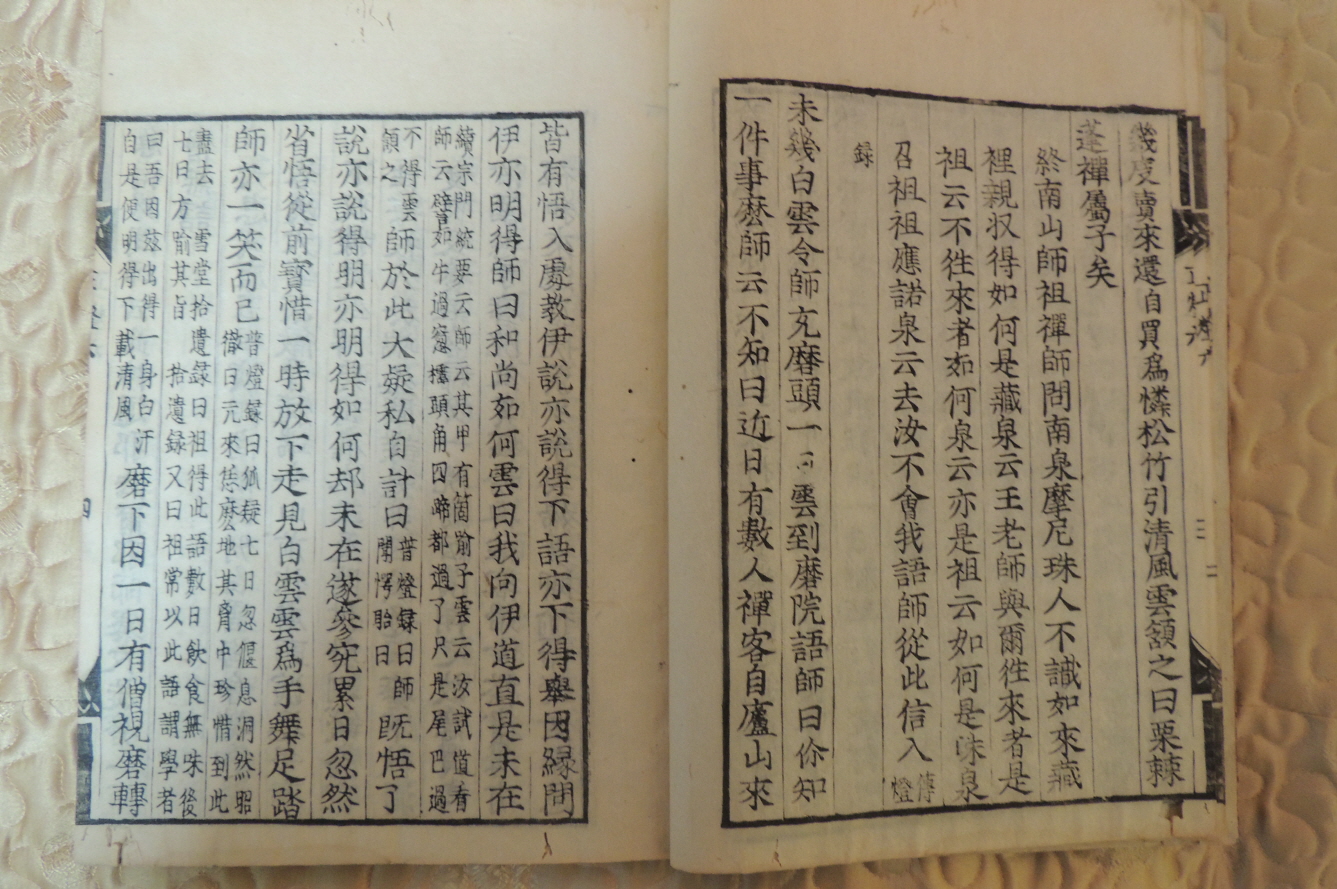 幾度賣來還自買爲憐松竹引清風雲頷之曰栗棘
蓬禪屬子矣
終南山師祖禪師問南泉摩尼珠人不識如來藏
裡親収得如何是藏泉云王老師與爾徃來者是
祖云不徃來者如何泉云亦是祖云如何是珠泉
召祖祖應諾泉云去汝不會我語師從此信入傳燈
録
未幾白雲令師充磨頭一日雲到磨院語師曰你知
一件事麽師云不知曰近日有數人禪客自廬山來
皆有悟入處教伊說亦說得下語亦下得舉因縁問
伊亦明得師曰和尚如何雲曰我向伊道直是未在
續宗門統要云師云某甲有箇喻子雲云汝試道看
師云譬如牛過窓櫺頭角四蹄都過了只是尾巴過
不得雲
頷之
師於此大疑私自計曰
普燈録曰師
聞愕眙曰
既悟了
說亦說得明亦明得如何却未在遂參究累日忽然
省悟從前寳惜一時放下走見白雲雲爲手舞足踏
師亦一笑而已
普燈録曰狐疑七日忽偃息洞然昭
徹曰元來恁麽地其胷中珍惜到此
盡去
雪堂拾遺録曰祖得此語數日飲食無味後
七日方喻其旨
拾遺録又曰祖常以此語謂學者
曰吾因玆出得一身白汗
自是便明得下載清風
磨下因一日有僧視磨轉
四